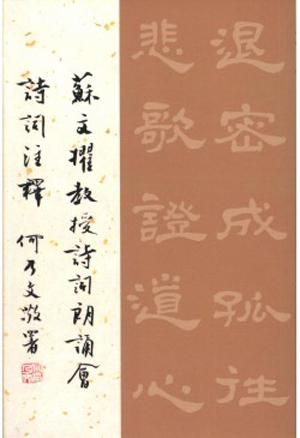 退密成孤往
悲歌證道心
蘇文擢教授詩詞朗誦會
詩詞注釋
何乃文敬署